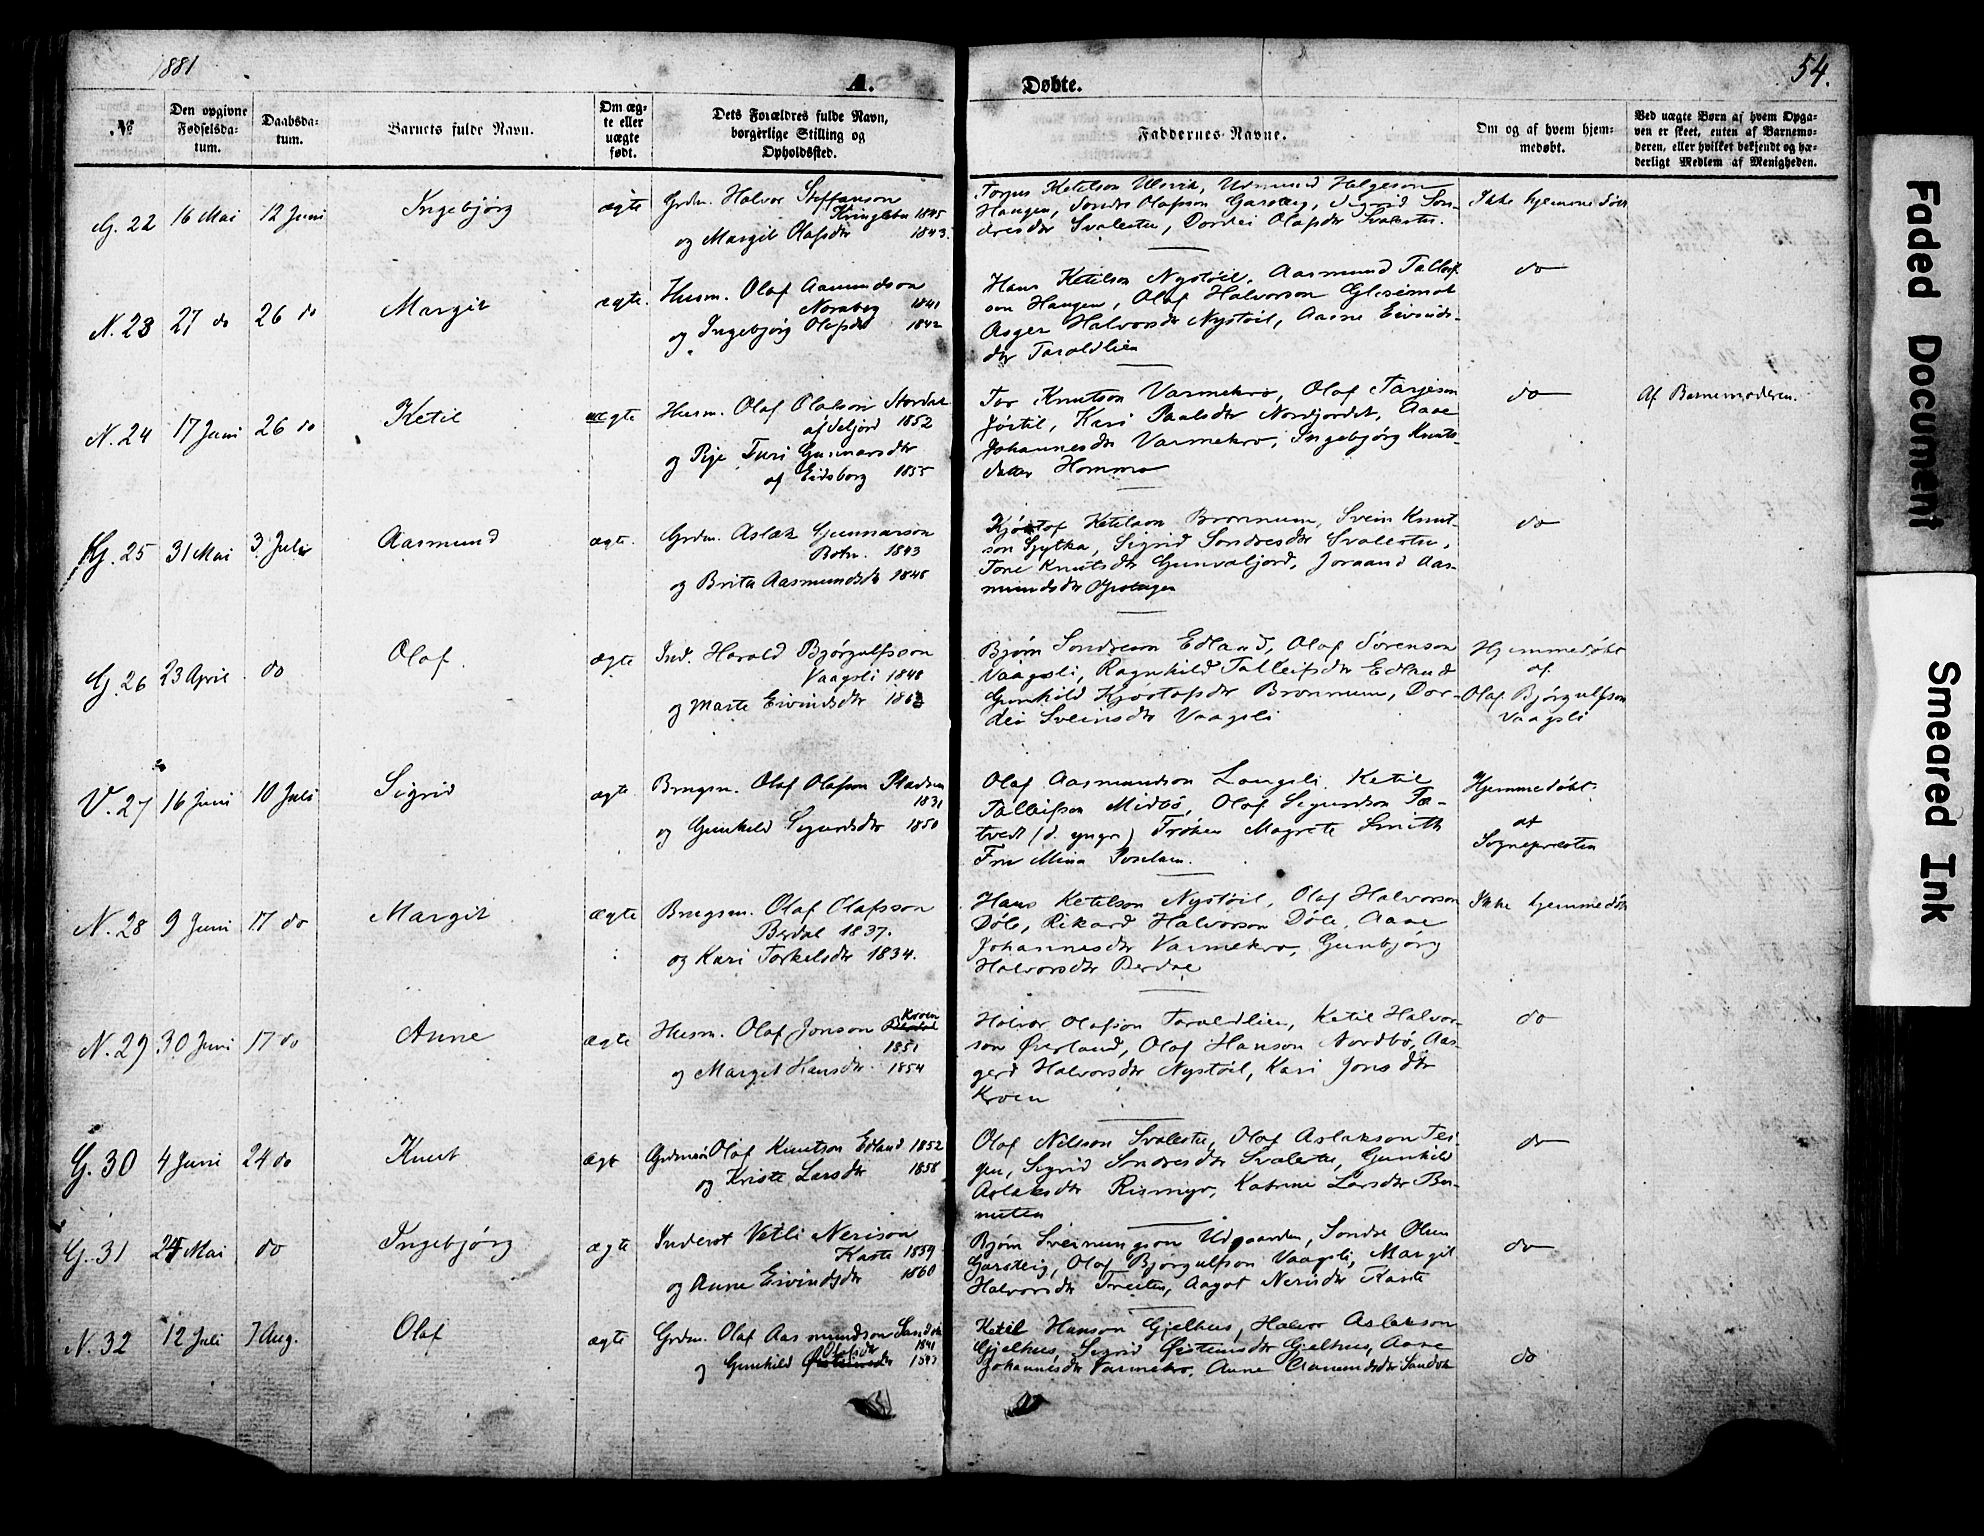 1881
A.
Døbte.
54.
№
Den opgivne Fødselsdatum.
Daabsdatum.
Barnets fulde Navn.
Om ægte eller uægte født.
Dets Forældres fulde Navn, borgerlige Stilling og Opholdssted.
Faddernes Navne.
Om og af hvem hjemmedøbt.
Ved uægte Børn af hvem Opgaven er skeet, enten af Barnemoderen, eller hvilket bekjendt og hæderligt Medlem af Menigheden.
G. 22 16 Mai 12 Juni Ingebjørg ægte Grdm. Halvor Steffanson
1845
og Margit Olafsdtr 1843.
Torjus Ketilson Ulevik, Helgeson
Haugen, Sondre Olafson Garsteig, Sigrid Son-
dresdtr Svalestu, Dordei Olafsdtr Svalestu.
Ikke hjemmedøbt
N. 23 27 do 26 do Margit ægte. Husm. Olaf Aamundson
Noraberg 1841
og Ingebjørg Olafsdtr 1842
Hans Ketilson Nystøil, Aasmund Talleif
son Haugen, Olaf Halvorson
Asger Halvorsdtr Nystøil, Aasne Eivinds-
dtr Taraldlien
do
N. 24 17 Juni 26 do Ketil uægte Husm. Olaf Olafson Stordal
af Seljord 1852
og Pige Turi Gunnarsdtr
af Eidsborg 1855
Tor Knutson Varmekro, Olaf Tarjeson
Jørtil, Kari Paalsdtr Nordjordet, Aase
Johannesdtr Varmekro, Ingebjørg Knuts-
datter Hommo
do
Af Barnemoderen.
G. 25 31 Mai 3. Juli Aasmund ægte. Grdm. Aslak Gunnarson
Botn. 1843
og Brita Aasmundsdtr 1848
Kjøstof Ketilson Brommen, Svein Knut-
son Gytka, Sigrid Sondresdtr Svalestu,
Tone Knutsdtr Gunvaljord, Joraand Aas-
mundsdtr
do
G. 26 23 April do Olaf. ægte Ind. Harald Bjørgulfsson
Vaagsli 1848
og Marte Eivindsdtr
Bjørn Sondreson Edland, Olaf Sørenson
Vaagsli, Ragnhild Talleifsdtr Edland
Gunhild Kjøstofsdtr Brommen, Dor-
dei Sveinsdtr Vaagsli
Hjemmedøbt
af
Olaf Bjørgulfson
Vaagsli
V. 27 16 Juni 10 Juli Sigrid ægte. Brugsm. Olaf Olafson Pladsen
1831
og Gunhild Sigurdsdtr 1850
Olaf Aasmundson Langsli, Ketil
Talleifson Midbø, Olaf Sigurdson Tæ-
tvedt (d. yngr) Frøken Magrete Smith
Fru Mina
Hjemmedøbt
af
Sognepresten
N. 28 9 Juni 17 do Margit ægte Brugsm. Olaf Olafsson
Berdal 1837.
og Kari Torkelsdtr 1834.
Hans Ketilson Nystøil, Olaf Halvorson
Døle, Rikard Halvorson Døle, Aase
Johannesdtr Varmekro, Gunbjørg
Halvorsdtr Berdal
Ikke hjemmedøbt
N. 29 30 Juni 17 do Anne ægte Husm. Olaf Jonson Kroen
1851
og Margit Hansdtr. 1854
Halvor Olafson Taraldlien, Ketil Halvor-
son Øverland, Olaf Hanson Nordbø, Aas-
gerd Halvorsdtr Nystøil, Kari Jonsdtr
Kroen
do
G. 30 4 Juni 24 do Knut ægt Grdm. Olaf Knutson Edland 1852
og Kriste Larsdtr 1858
Olaf Nilsson Svalestu, Olaf Aslakson Tei-
gen, Sigrid Sondresdtr Svalestu, Gunhild
Aslaksdtr Rismyr, Katrine Larsdtr Ber-
nuten
do
G. 31 24 Mai do Ingebjørg ægte Inderst Vetli Nerison
Kaste 1859
og Anne Eivindsdtr 1860
Bjørn Sveinungson Udgaarden, Sondre Olsen
Garsteig, Olaf Bjørgulfson Vaagsli, Margit
Halvorsdtr Treiten, Aagot Nerisdtr Kaste
do
N. 32 12 Juli 7 Aug. Olaf ægte Grdm. Olaf Aasmundson Sandok
1841
Olafsdtr
og Gunhild Østensdtr
Ketil Hanson Gjelhus, Halvor Aslakson
Gjelhus, Sigrid Øisteinsdtr Gjelhus, Aase
Johannesdtr Varmekro, Anne Aamundsdtr Sandok
do
Faded Document
Smeared Ink